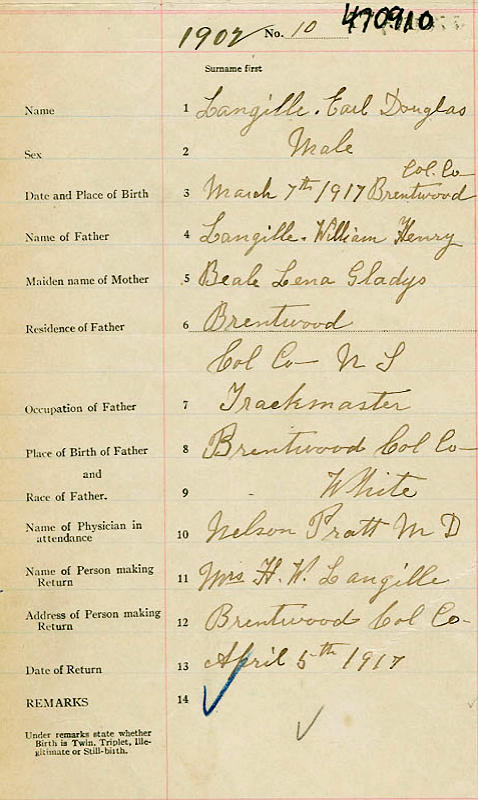 1902 No. 10 470910
Surname first
Name 1 Langille. Earl Douglas
Sex 2 Male
Col. Co
Date and Place of Birth 3 March 7th 1917 Brentwood
Name of Father 4 Langille. William Henry
Maiden name of Mother 5 Beale Lena Gladys
Residence of Father 6 Brentwood
Col Co N S
Occupation of Father 7 Trackmaster
Place of Birth of Father 8 Brentwood Col Co
and
Race of Father. 9 White
Name of Physician in
attendance 10 Nelson Pratt M D
Name of Person making
Return 11 Mrs H. W. Langille
Address of Person making
Return 12 Brentwood Col Co-
Date of Return 13 April 5th 1917
REMARKS 14
Under remarks state whether
Birth is Twin, Triplet, Ille-
gitimate or Still-birth.